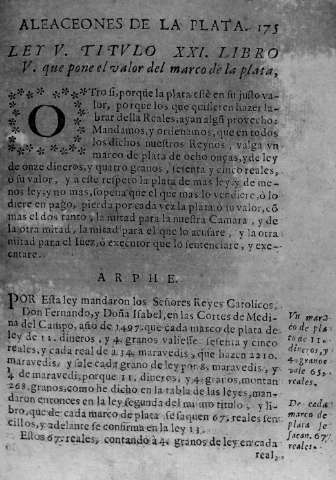 ALEACEONES DE LA PLATA. 175
LEY V. TITVLO XXI. LIBRO
V. que pone el valor del marco de la plata,
OTro si, porque la plata esté en su justo va-
lor, porque los que quisieren hazer la-
brar della Reales, ayan algũ provecho:
Mandamos, y ordenamos, que en todos
los dichos nuestros Reynos, valga vn
marco de plata de ocho onças, y de ley
de onze dineros, y quatro granos, setenta y cinco reales,
ò su valor, y a este respeto la plata de mas ley, y de me-
nos ley, y no mas, so pena que el que mas lo vendiere, ò lo
diere en pago, pierda por cada vez la plata ò su valor, cõ
mas el dos tanto, la mitad para la nuestra Camara, y de
la otra mitad, la mitad para el que lo acusare, y la otra
mitad para el Iuez, ò executor que lo sentenciare, y exe-
cutare.
ARPHE.
POR Esta ley mandaron los Señores Reyes Catolicos,
Don Fernando, y Doña Isabel, en las Cortes de Medi-
na del Campo, año de 1497. que cada marco de plata de
ley de 11. dineros, y 4. granos valiesse sesenta y cinco
reales, y cada real de a 34. maravedis, que hazen 2210.
maravedis, y sale cada grano de ley por 8. maravedis, y
4. de maravedis, porque 11. dineros, y 4. granos, montan
268. granos, como he dicho en la tabla de las leyes, man-
daron entonces en la ley segunda del mismo titulo, y li-
bro, que de cada marco de plata se saquen 67. reales sen-
cillos, y adelante se confirma en la ley 13.
Estos 67. reales, contando a 4. granos de ley en cada
real,
Vn mar-
co de pla-
ta de 11.
dineros, y
4. granos
vale 65.
reales.
De cada
marco de
plata se
sacan. 67.
reales.